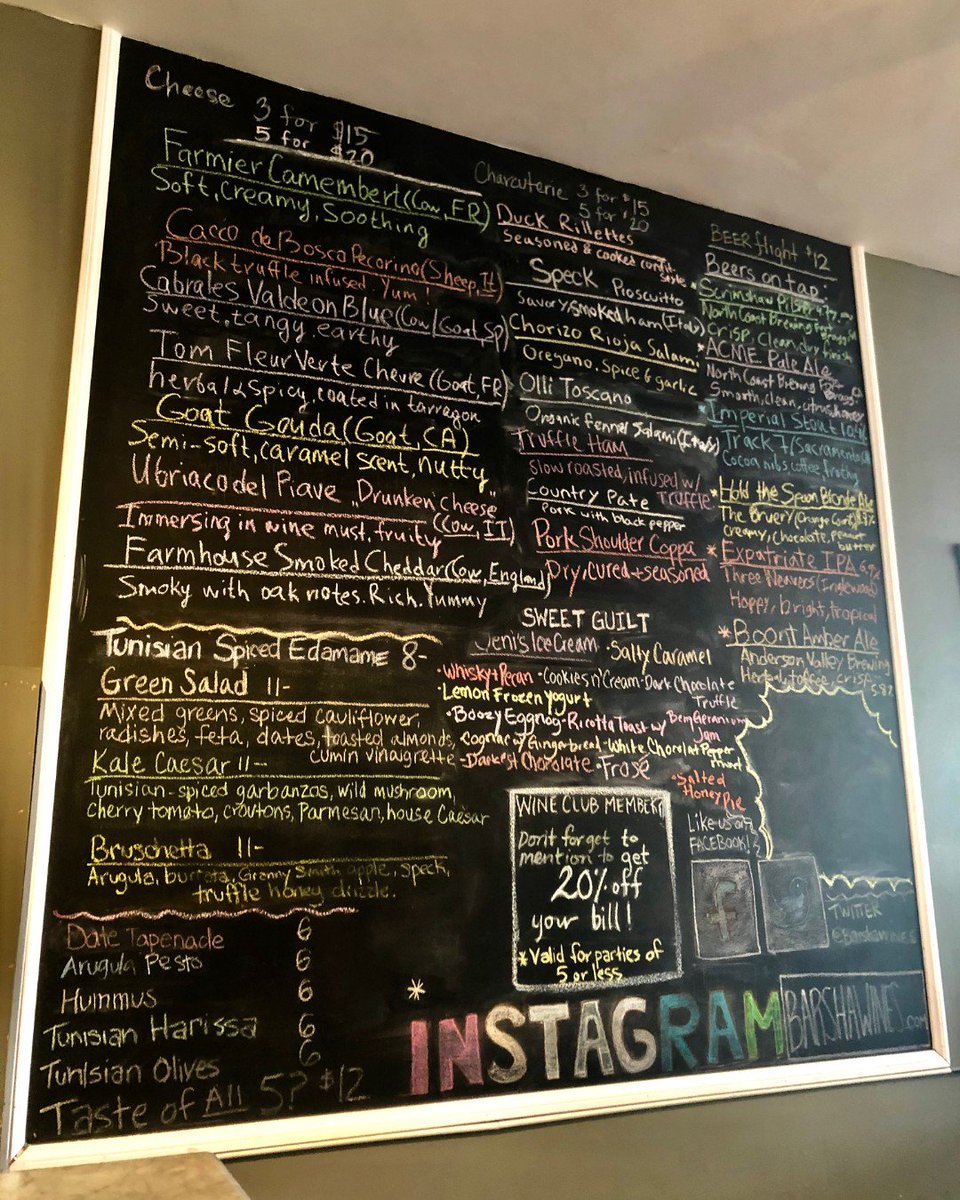 Cheese 3 for $15
5 for $20
Farmier Camembert (Cow, FR)
Soft, Creamy, Soothing
Cacco de Bosco Pecorino (Sheep, It)
Black truffle infused. Yum!
Cabrales Valdeon Blue (Cow/Goat, Sp)
Sweet, tangy earthy
Tom Fleur Verte Chevre (Goat, FR)
herbal & Spicy, coated in tarragon
Goat Gouda (Goat, CA)
Semi-soft, caramel scent, nutty
Ubriaco del Piave "Drunken cheese"
Immersing in wine must, fruity (Cow, IT)
Farmhouse Smoked Cheddar (Cow, England)
Smoky with oak notes. Rich. Yummy
Tunisian Spiced Edamame 8-
Green Salad 11-
Mixed greens, spiced cauliflower,
radishes, feta, dates, toasted almonds,
cumin vinaigrette
Kale Caesar 11-
Tunisian-spiced garbanzos, wild mushroom,
cherry tomato, croutons, Parmesan, house Caesar
Bruschetta 11-
Arugula, burrata, Granny Smith apple, speck,
truffle honey drizzle.
Date Tapenade 6
Arugula Pesto 6
Hummus 6
Tunisian Harissa 6
Tunisian Olives 6
Taste of All 5? $12
Charcuterie 3 for $15
5 for $20
Duck Rillettes
Seasoned & cooked confit
style
Speck Proscuitto
Savory/smoked ham (Italy)
Chorizo Rioja Salami
Oregano, Spice & garlic
Olli Toscano
Organic Fennel Salami (Italy)
Truffle Ham
Slow roasted, infused w/
Truffle
Country Pate
Pork with black pepper
Pork Shoulder Coppa
Dry, cured + seasoned
SWEET GUILT
Jeni's Ice Cream • Salty Caramel
• Whisky + Pecan • Cookies n' Cream • Dark Chocolate
Truffle
• Lemon Frozen Yogurt
• Boozy Eggnog • Ricotta Toast w/ Geranium
Jam
Cognac w/ Gingerbread • White Chocolate Pepper
mint
• Darkest Chocolate • Frosé
• Salted
Honey Pie
WINE CLUB MEMBER
Don't forget to
mention to get
20% off
your bill!
* Valid for parties of
5 or less
Like us on
FACEBOOK!
f
TWITTER
@Barshawines
* INSTAGRAM BARSHAWINES_com
BEER flight $12
Beers on tap:
* Scrimshaw Pilsner
North Coast Brewing Fort Bragg
Crisp, clean, dry finish
* ACME Pale Ale
North Coast Brewing Fort Bragg
Smooth, clean, citrus
* Imperial Stout
Track 7 (Sacramento)
Cocoa nibs coffee, frothy
* Hold the Spoon Blonde Ale
The Bruery (Orange County)
Creamy, Chocolate, peanut
butter
* Expatriate IPA
Three Weavers (Inglewood)
Hoppy, bright, tropical
* Boont Amber Ale
Anderson Valley Brewing
Herbal, toffee, crisp